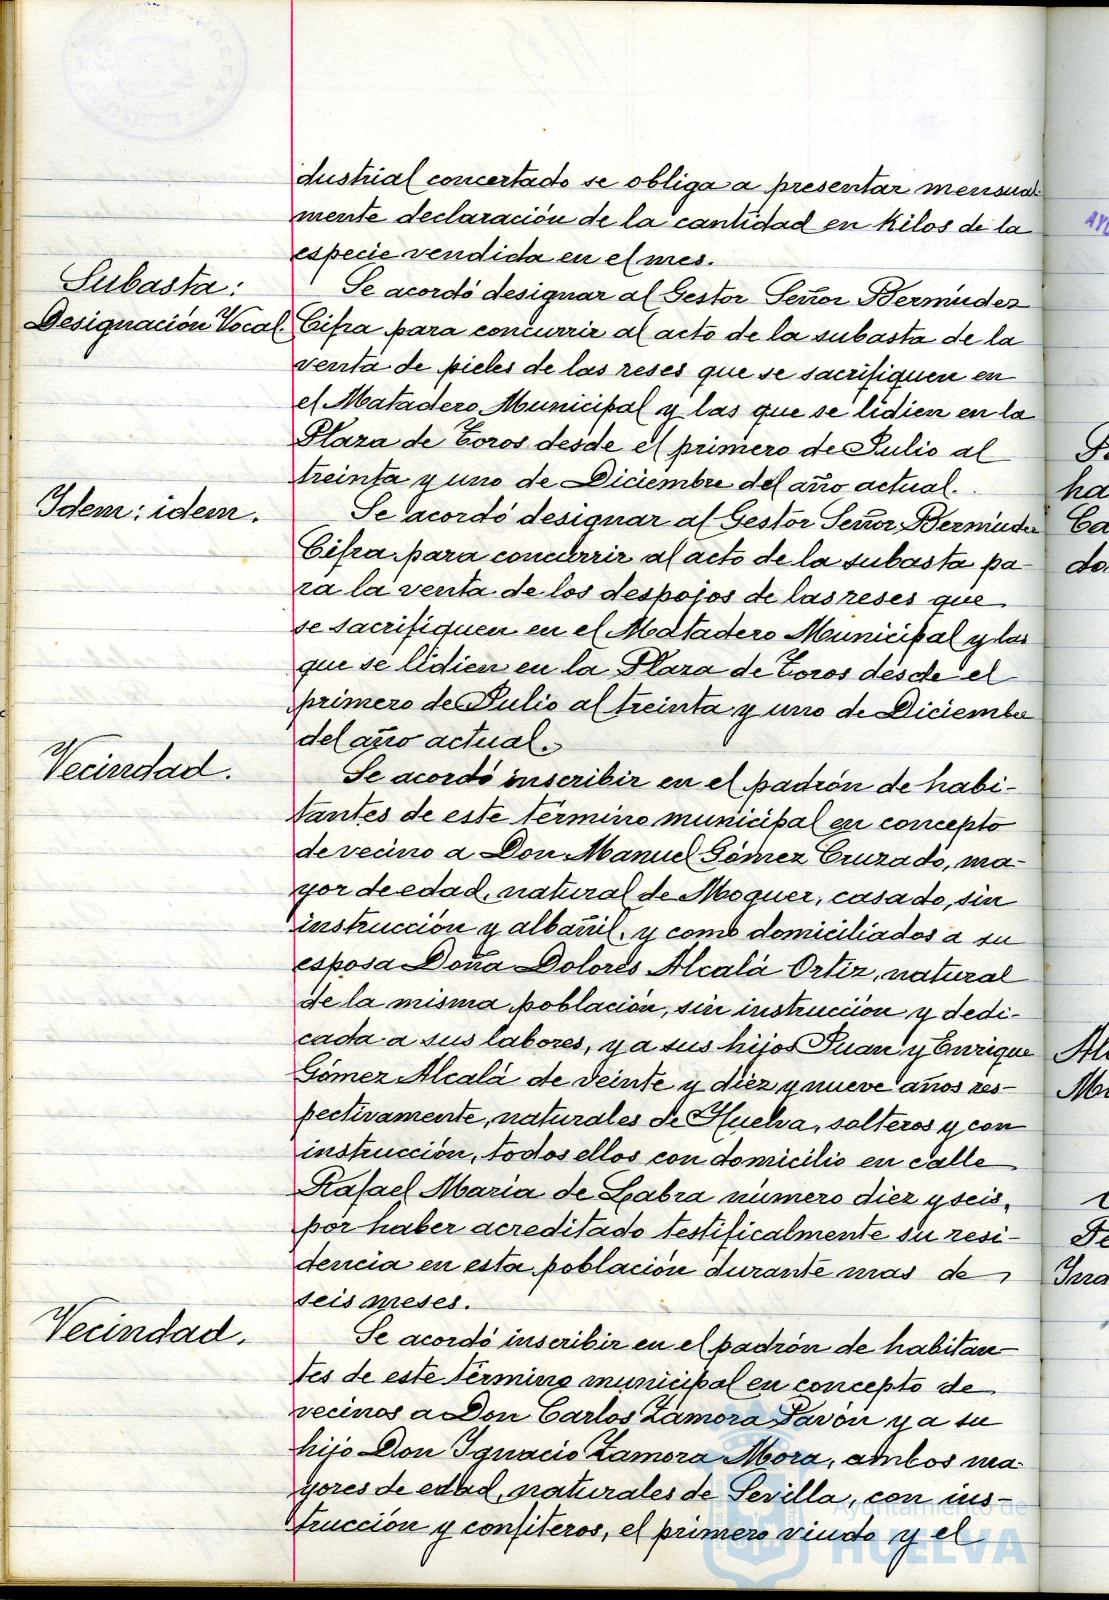 dustrial concertado se obliga a presentar mensual-
mente declaración de la cantidad en Kilos de la
especie vendida en el mes.
Subasta:
Designación Vocal.
Se acordó designar al Gestor Señor Bermúdez
Cifra para concurrir al acto de la subasta de la
venta de pieles de las reses que se sacrifiquen en
el Matadero Municipal y las que se lidien en la
Plaza de Toros desde el primero de Julio al
treinta y uno de Diciembre del año actual.
Idem: idem.
Se acordó designar al Gestor Señor Bermúdez
Cifra para concurrir al acto de la subasta pa-
ra la venta de los despojos de las reses que
se sacrifiquen en el Matadero Municipal y las
que se lidien en la Plaza de Toros desde el
primero de Julio al treinta y uno de Diciembre
del año actual.
Vecindad.
Se acordó inscribir en el padrón de habi-
tantes de este término municipal en concepto
de vecino a Don Manuel Gómez Cruzado, ma-
yor de edad, natural de Moguer, casado, sin
instrucción y albañil, y como domiciliados a su
esposa Doña Dolores Alcalá Ortiz, natural
de la misma población, sin instrucción y dedi-
cada a sus labores, y a sus hijos Juan y Enrique
Gómez Alcalá de veinte y diez y nueve años res-
pectivamente, naturales de Huelva, solteros y con
instrucción, todos ellos con domicilio en calle
Rafael María de Labra número diez y seis,
por haber acreditado testificalmente su resi-
dencia en esta población durante mas de
seis meses.
Vecindad.
Se acordó inscribir en el padrón de habitan-
tes de este término municipal en concepto de
vecinos a Don Carlos Zamora Pavón y a su
hijo Don Ignacio Zamora Mora, ambos ma-
yores de edad, naturales de Sevilla, con ins-
trucción y confiteros, el primero viudo y el
Ayuntamiento de
HUELVA